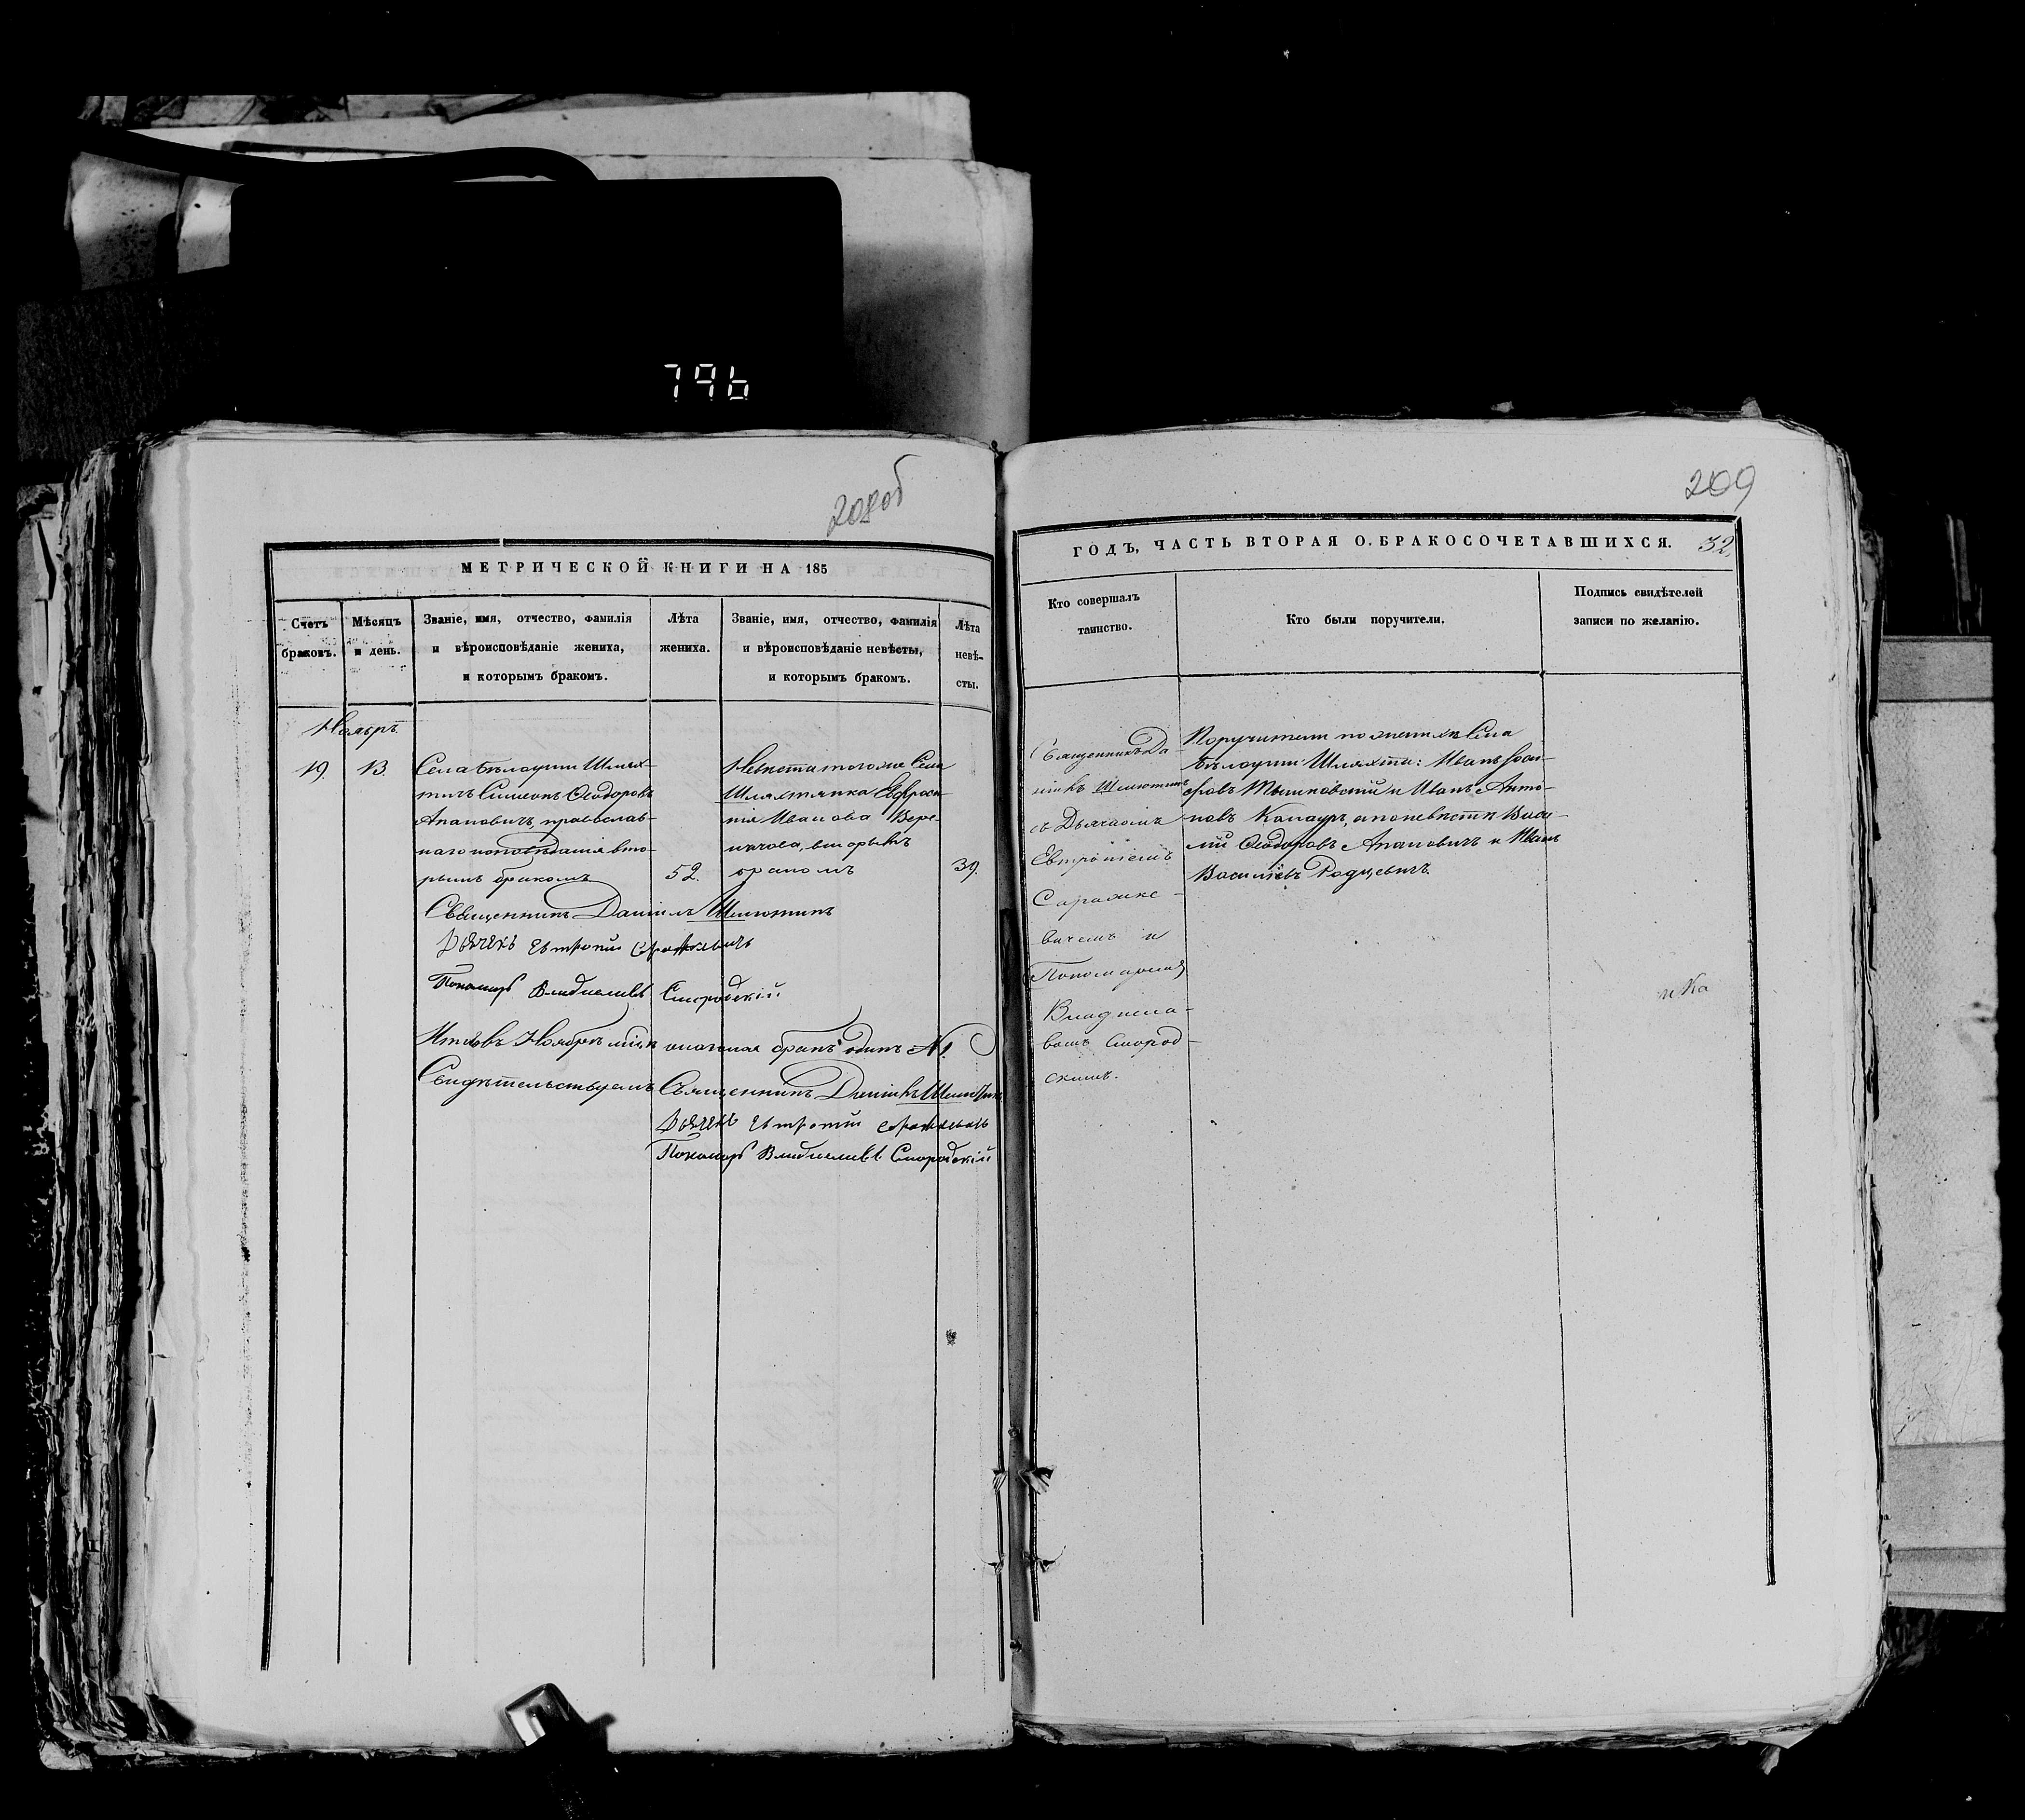 796
208 об
МЕТРИЧЕСКОЙ КНИГИ НА 185
Счетъ браковъ.
Мѣсяцъ и день.
Званіе, имя, отчество, фамилія
и вѣроисповѣданіе жениха,
и которымъ бракомъ.
Лѣта
жениха.
Званіе, имя, отчество, фамилія
и вѣроисповѣданіе невѣсты,
и которымъ бракомъ.
Лѣта
невѣ-
сты.
Ноябрь
19.
13.
Села Бѣлоуши Шлях-
тичъ Симеонъ Ѳеодоровъ
Апановичъ, православ-
наго исповѣданія вто-
рымъ бракомъ
52.
Невѣста того же Села
Шляхтянка Евфроси-
нія Иванова Вере-
вторымъ
бракомъ
39.
Священникъ Даніилъ
Дьячекъ Евтропій
Пономарь Владиславъ Смородскій
Итого въ Ноябрѣ мѣс. бракъ одинъ №1.
Свидѣтельствуемъ Священникъ Даніилъ
Дьячекъ Евтропій
Пономарь Владиславъ Смородскій
209
ГОДЪ, ЧАСТЬ ВТОРАЯ О БРАКОСОЧЕТАВШИХСЯ.
32.
Кто совершалъ
таинство.
Кто были поручители.
Подпись свидѣтелей
записи по желанію.
Священникъ Да-
ніилъ
съ Дьячкомъ
Евтропіемъ
вичемъ и
Пономаремъ
Владисла-
вомъ Смород-
скимъ.
Поручители по женихѣ Села
Бѣлоуши Шляхта: Иванъ Ѳеод-
оровъ Тышковскій и Иванъ Анто-
новъ а по невѣстѣ Васи-
лій Ѳеодоровъ Апановичъ и Иванъ
Васильевъ Родцевичъ.